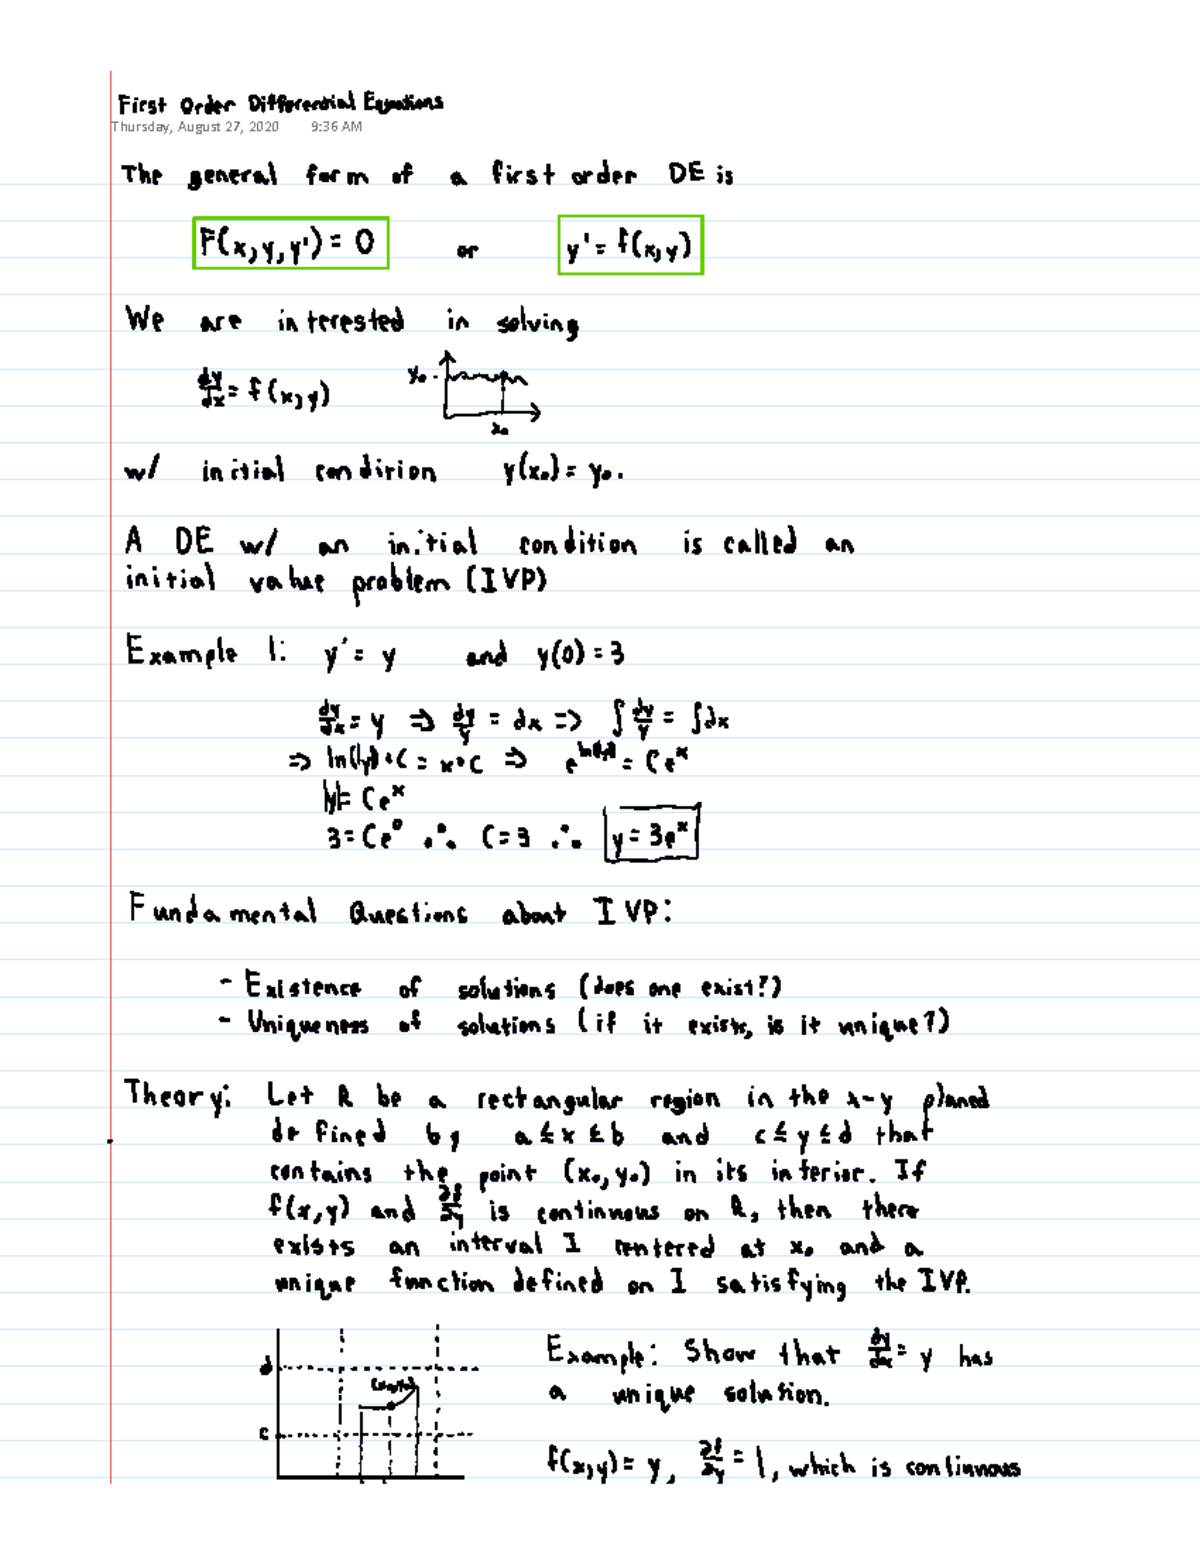 First Order Differential Equations
Thursday, August 27, 2020 9:36 AM
The general form of a first order DE is
F(x, y, y') = 0 or y' = f(x, y)
We are interested in solving
dy/dx = f(x, y) y₀ x₀
w/ initial condirion y(x₀) = y₀.
A DE w/ an initial condition is called an
initial value problem (IVP)
Example 1: y' = y and y(0) = 3
dy/dx = y ⇒ dy/y = dx ⇒ ∫ dy/y = ∫ dx
⇒ ln(|y|) + C = x + C ⇒ e^ln(|y|) = Ce^x
|y| = Ce^x
3 = Ce^0 ∴ C = 3 ∴ y = 3e^x
Fundamental Questions about IVP:
- Existence of solutions (does one exist?)
- Uniqueness of solutions (if it exists, is it unique?)
Theory: Let R be a rectangular region in the x-y planed
defined by a ≤ x ≤ b and c ≤ y ≤ d that
contains the point (x₀, y₀) in its interior. If
f(x, y) and ∂f/∂y is continuous on R, then there
exists an interval I centered at x₀ and a
unique function defined on I satisfying the IVP.
d
(x₀, y₀)
c
Example: Show that dy/dx = y has
a unique solution.
f(x, y) = y, ∂f/∂y = 1, which is continuous